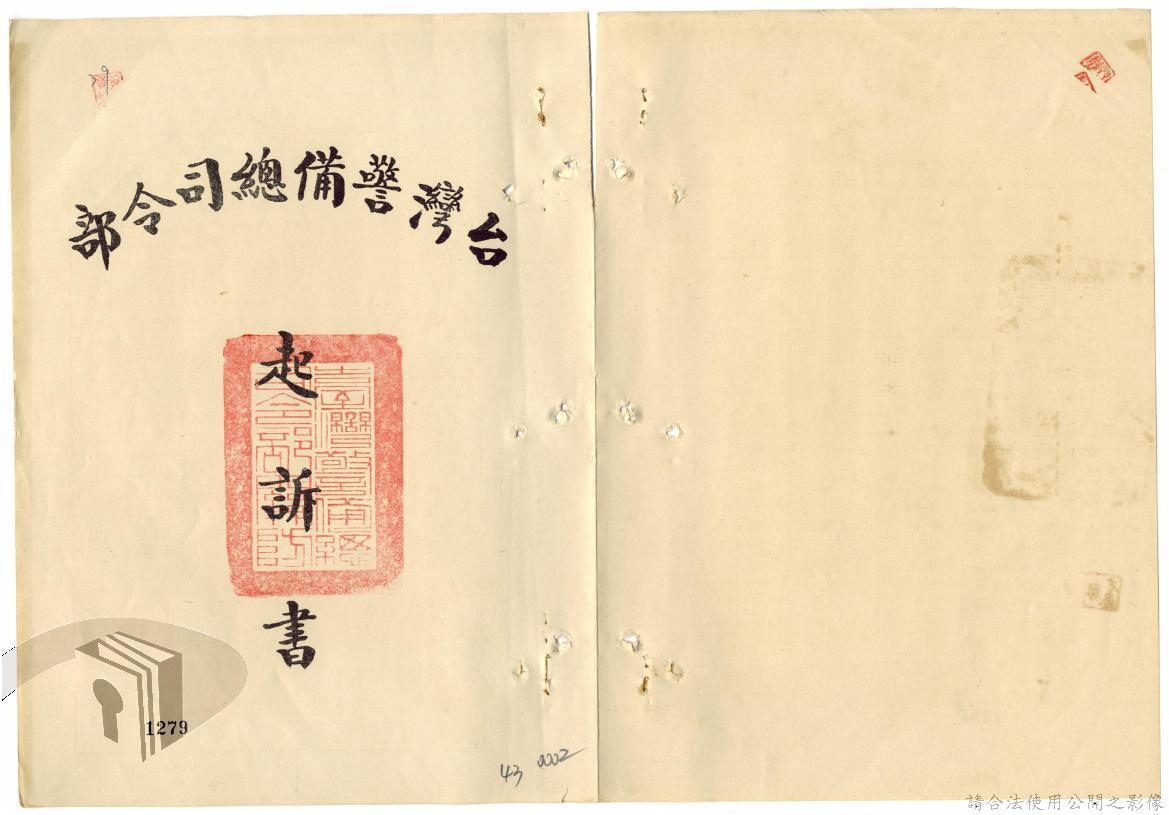 台灣警備總司令部
起訴書
1279
43 0002
請合法使用公開之影像